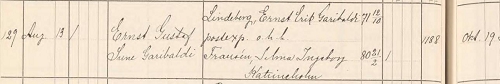 Lindeberg, Ernst Erik Garibaldi 71 12/10
129 Aug. 13 / Ernst Gustaf postexp. o.h.h. 1188 Okt. 19
Sune Garibaldi Fransén, Selma Ingeborg 80 21/2 1
Katrineholm